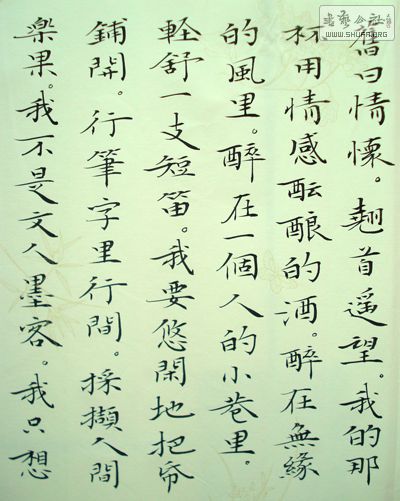 書藝公社
WWW.SHUFA.ORG
舊日情懷。翹首遥望。我的那
杯用情感酝酿的酒。醉在無緣
的風里。醉在一個人的小巷里。
軽舒一支短笛。我要悠閑地把帋
鋪開。行筆字里行間。採擷人間
樂果。我不是文人墨客。我只想